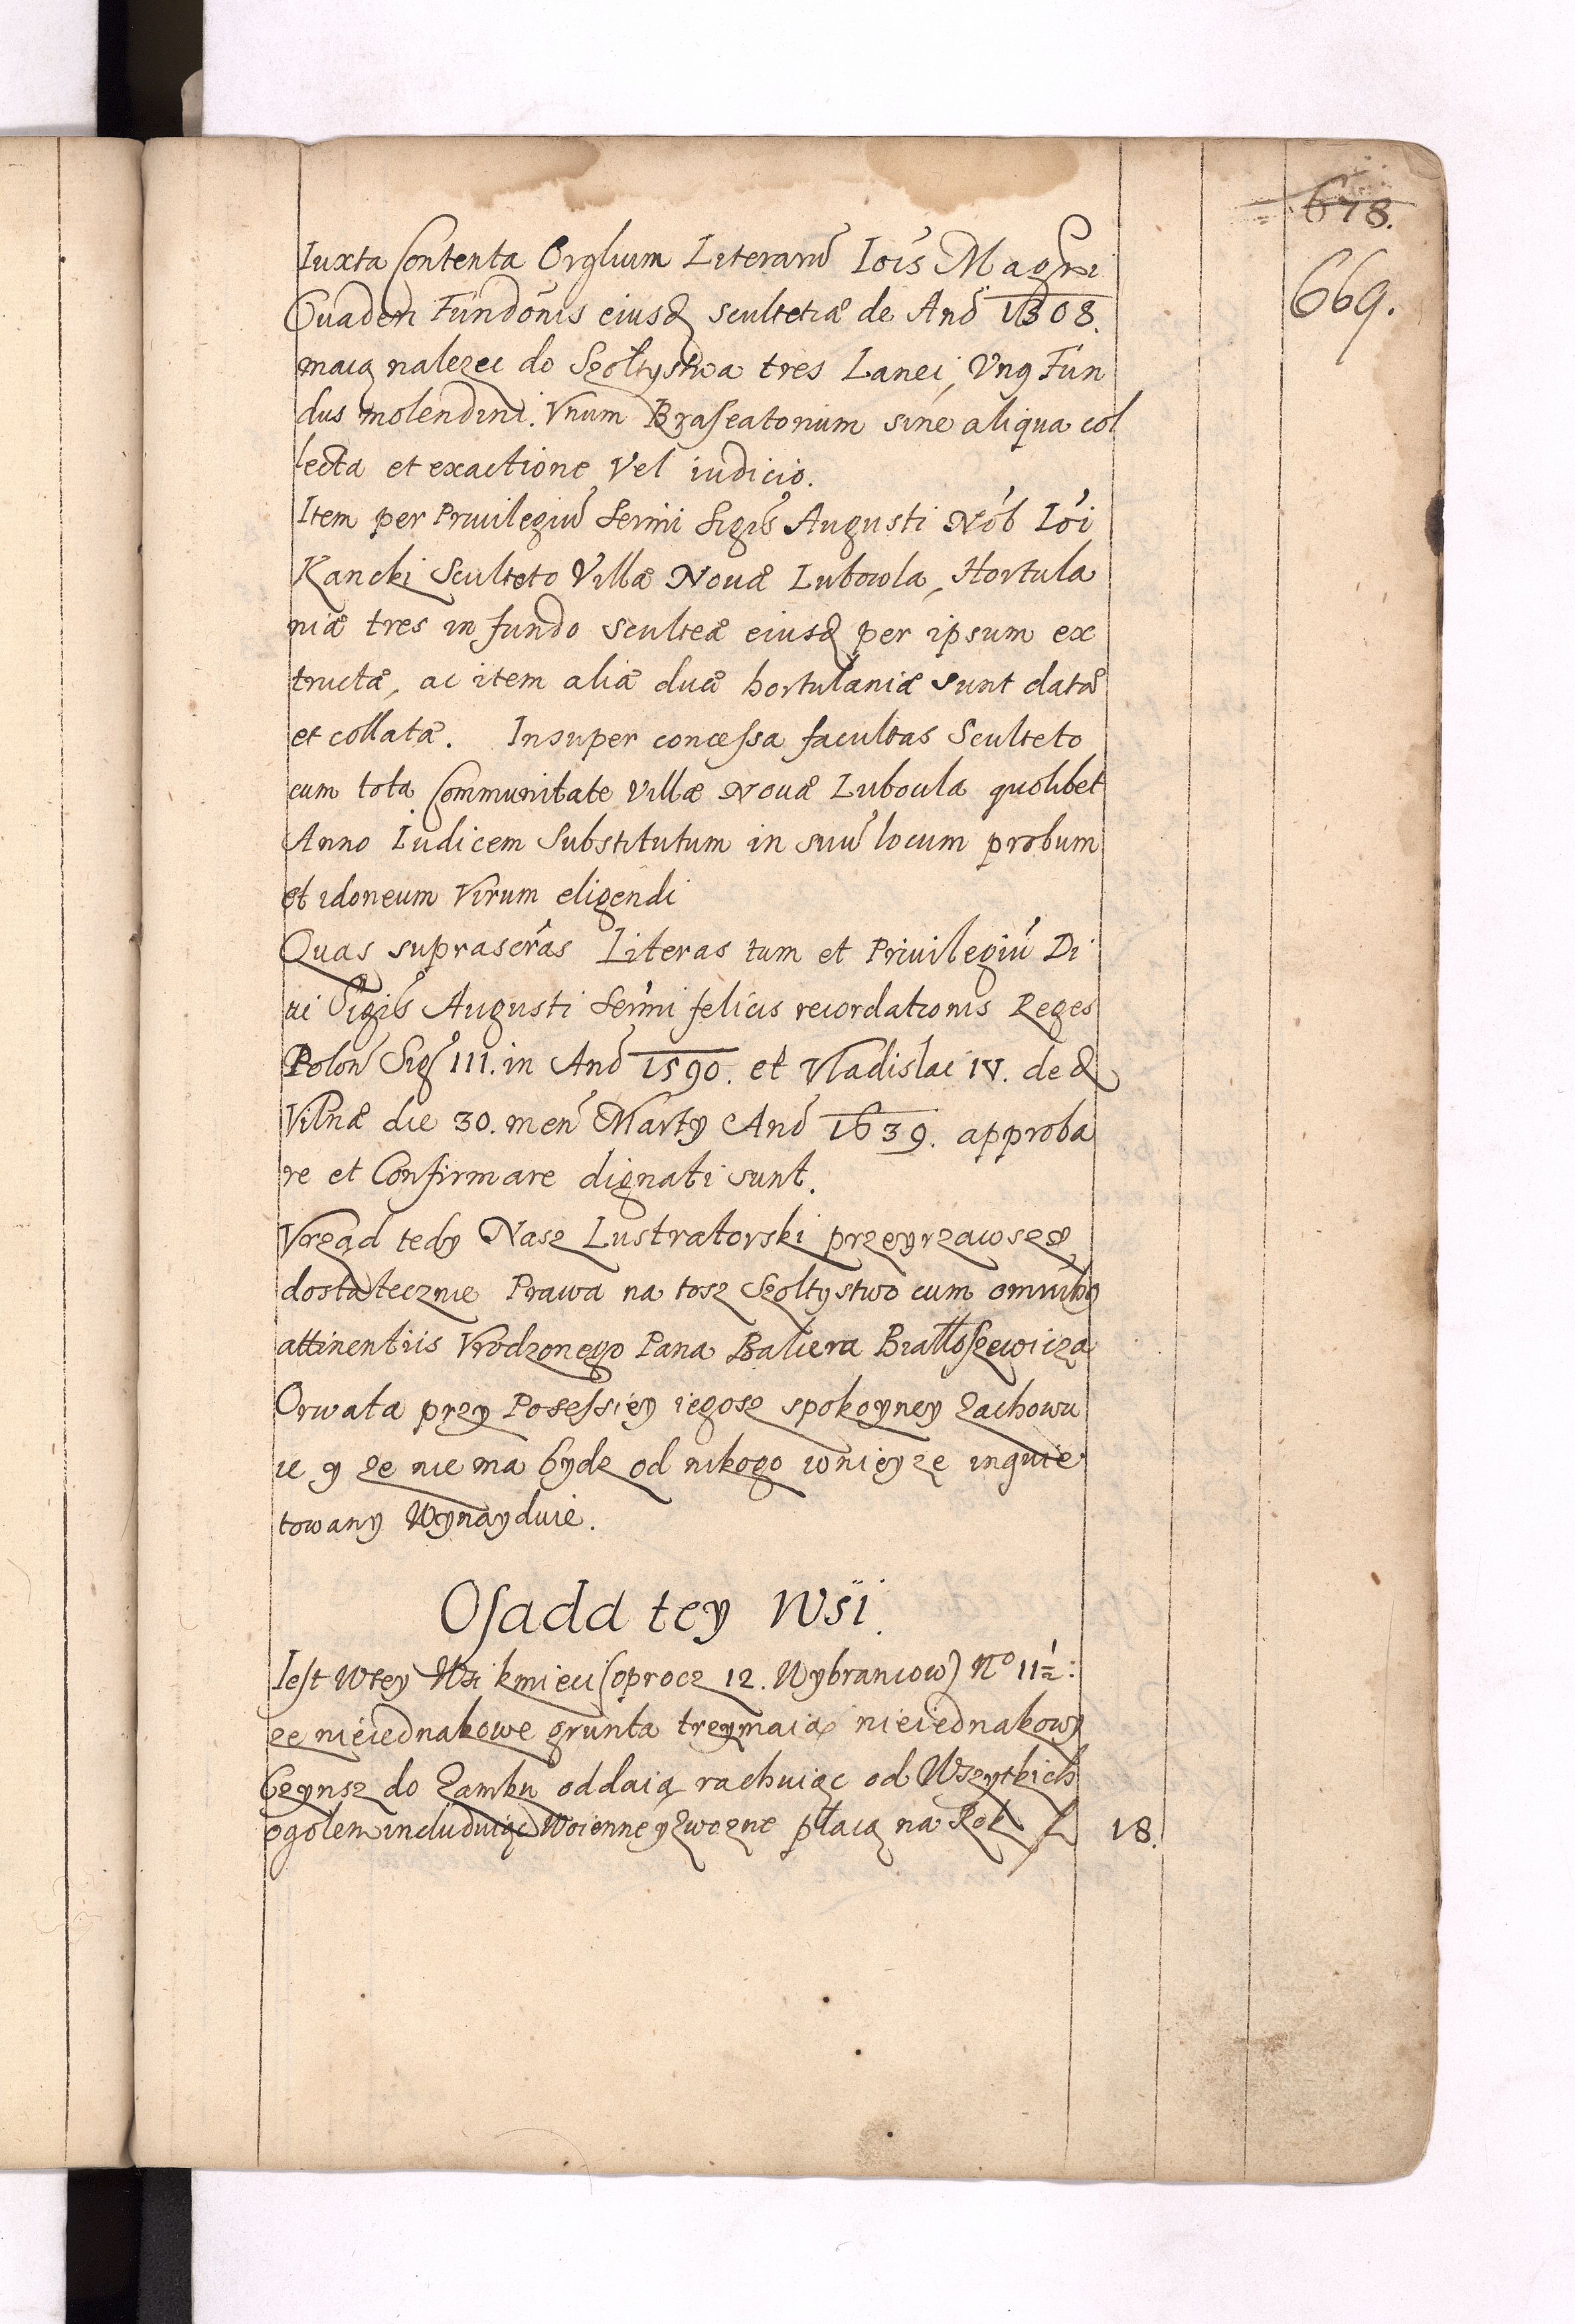 678.
669.
Iuxta Contenta Orglium Literarũ Iois Magni
Cuaden Fundõnis eiusq sculteciæ de Anõ 1308.
maią nalezec do Szołtystwa tres Lanei, Vnq Fun
dus molendini. Vnum Braseatorium sine aliqua col
lecta et exactione vel iudicio.
Item per Priuilegiũ Sermi Sigis Augusti Nob Ioi
Kancki Sculteto Villæ Nouæ Lubowla, Hortula
niæ tres in fundo sculteæ eiusq per ipsum ex
tructæ, ac item aliæ duæ hortulaniæ sunt datæ
et collatæ. Insuper concessa facultas Sculteto
cum tota Communitate Villæ Nouæ Lubovla quolibet
Anno Iudicem Substitutum in suũ locum probum
et idoneum Virum eligendi
Quas suprascras Literas tum et Priuilegiũ Di
ui Sigis Augusti Sermi felicis recordationis Reges
Polon Sig III. in Anõ 1590. et Vladislai IV. de q
Vilnæ die 30. men Marty Anõ 1639. approba
re et Confirmare dignati sunt.
Vrząd tedy Nasz Lustratorski przeyrzawszy
dostatecznie Prawa na tosz Szoltystwo cum omnibq
attinentiis Vrodzonego Pana Baliera Białłoszewicza
Orwata przy Posessiey iegosz spokoyney zachowu
ie y ze nie ma bydz od nikogo wniey ze inquie
towany Wynayduie.
Osada tey Wsi.
Iest Wtey Wsi kmieci (oprocz 12. Wybrancow) No 11½:
ze nieiednakowe grunta trzymaią nieiednakowy
Czynsz do Zamku oddaią rachuiąc od Wszytkich
ogolem includuiąc Woienne y Zwozne płacą na Rok f 18.